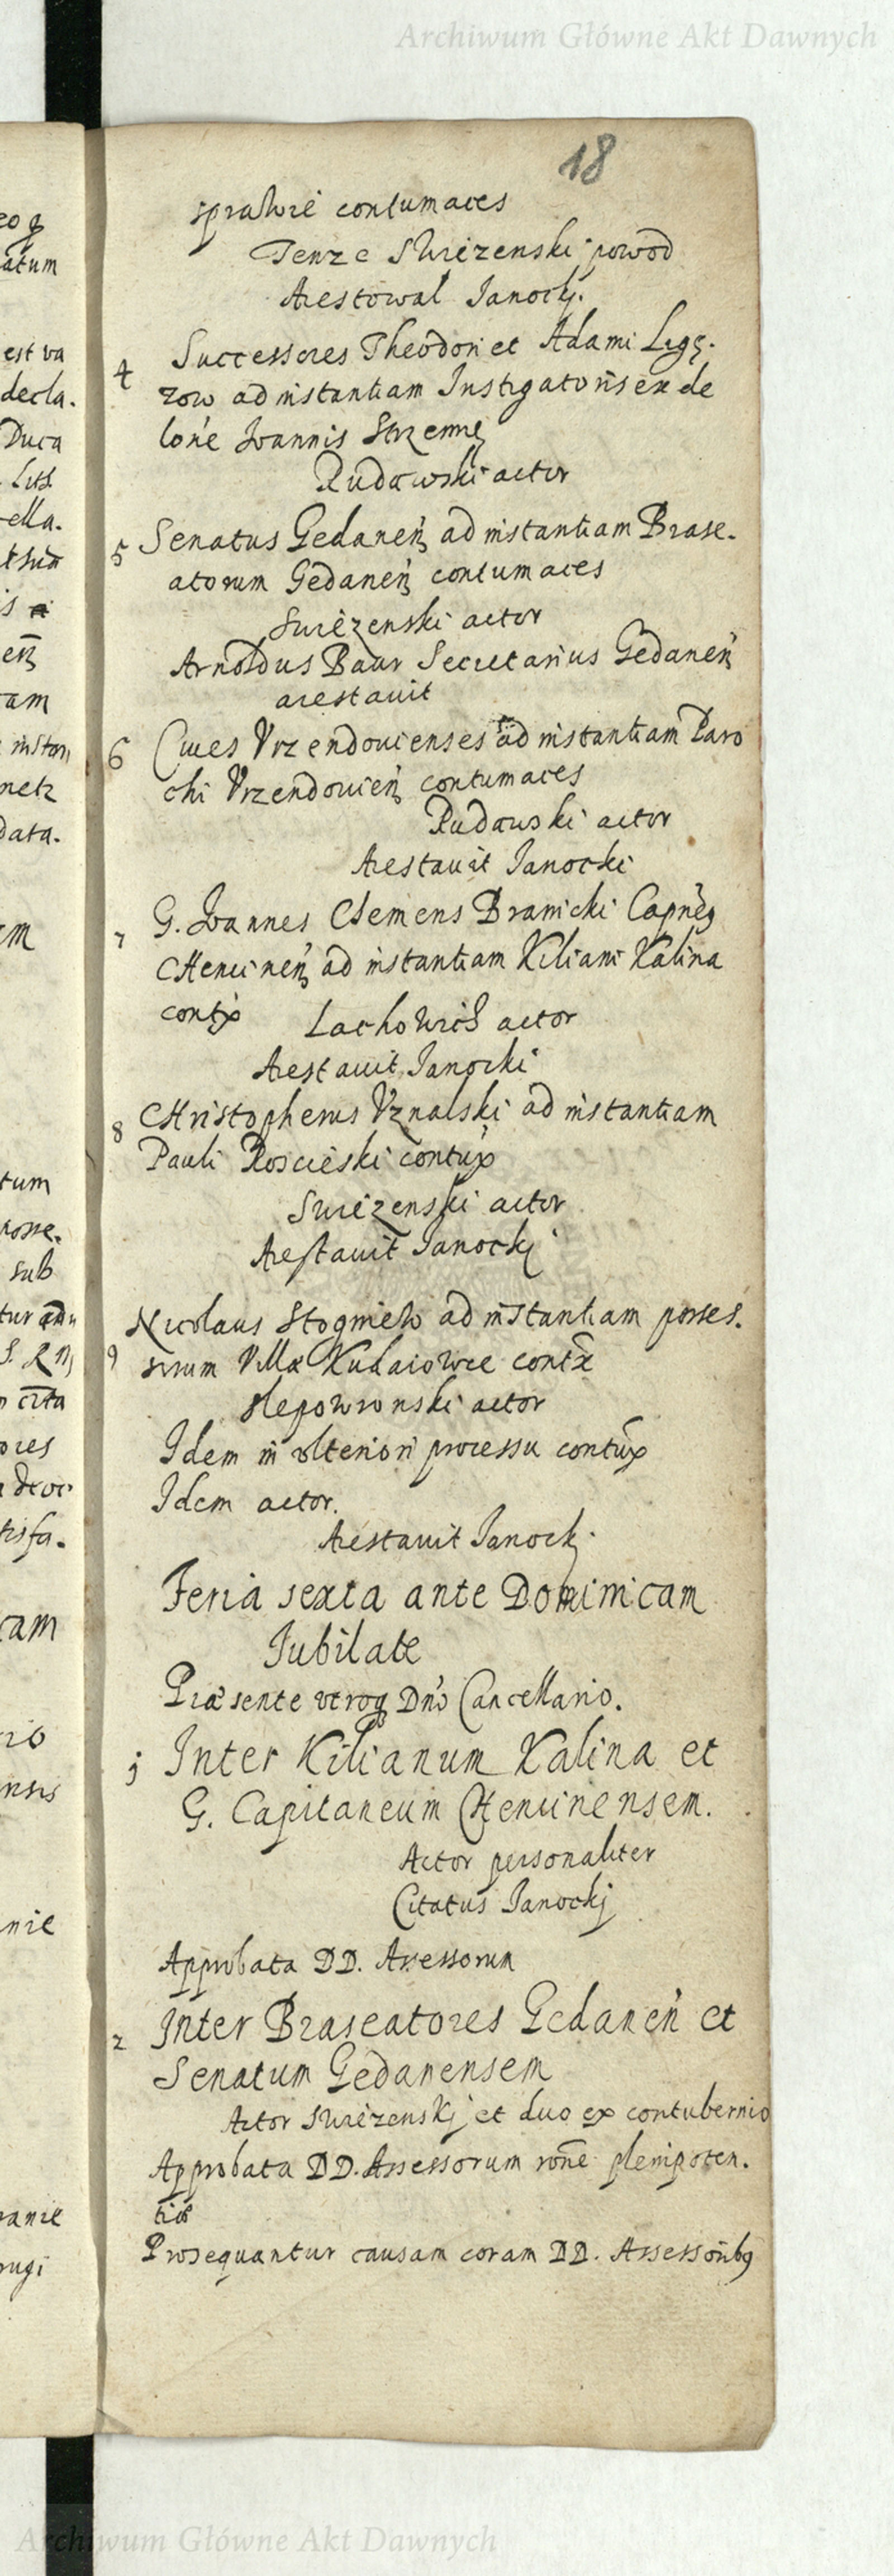 Archiwum Główne Akt Dawnych
18
sprawie contumaces
Tenze Swiezenski powod
Arestowal Janocki.
4 Successores Theodori et Adami Ligę.
zow ad instantiam Instigatoris ex de
lone Joannis Strzemię
Rudawski actor
5 Senatus Gedanen ad instantiam Brase.
atorum Gedanen contumaces
Swiezenski actor
Arnoldus Baur Secretarius Gedanen
arestauit
6 Ciues Vrzendouienses ad instantiam Paro
chi Vrzendouien contumaces
Rudawski actor
Arestauit Janocki
7 G. Joannes Clemens Branicki Capneq
CHencinen ad instantiam Kiliani Kalina
contx Lachowicz actor
Arestauit Janocki
8 CHristopherus Vznalski ad instantiam
Pauli Koscieski contux
Swiezenski actor
Arestauit Janockj
Nicolaus Stogniew ad instantiam posses.
9 sorum Villæ Kuhaiowce contx
Slepowronski actor
Idem in vlteriori processu contux
Idem actor.
Arestauit Janocki
Feria sexta ante Dominicam
Jubilate
Præsente vtroq Dno Cancellario.
1 Inter Kilianum Kalina et
G. Capitaneum CHencinensem.
Actor personaliter
Citatus Janockj
Approbata DD. Assessorum
2 Inter Braseatores Gedanen et
Senatum Gedanensem
Actor Swiezenskj et duo ex contubernio
Approbata DD. Assessorum rone plenipoten.
tiæ
Prosequantur causam coram DD. Assessoribq
Archiwum Główne Akt Dawnych